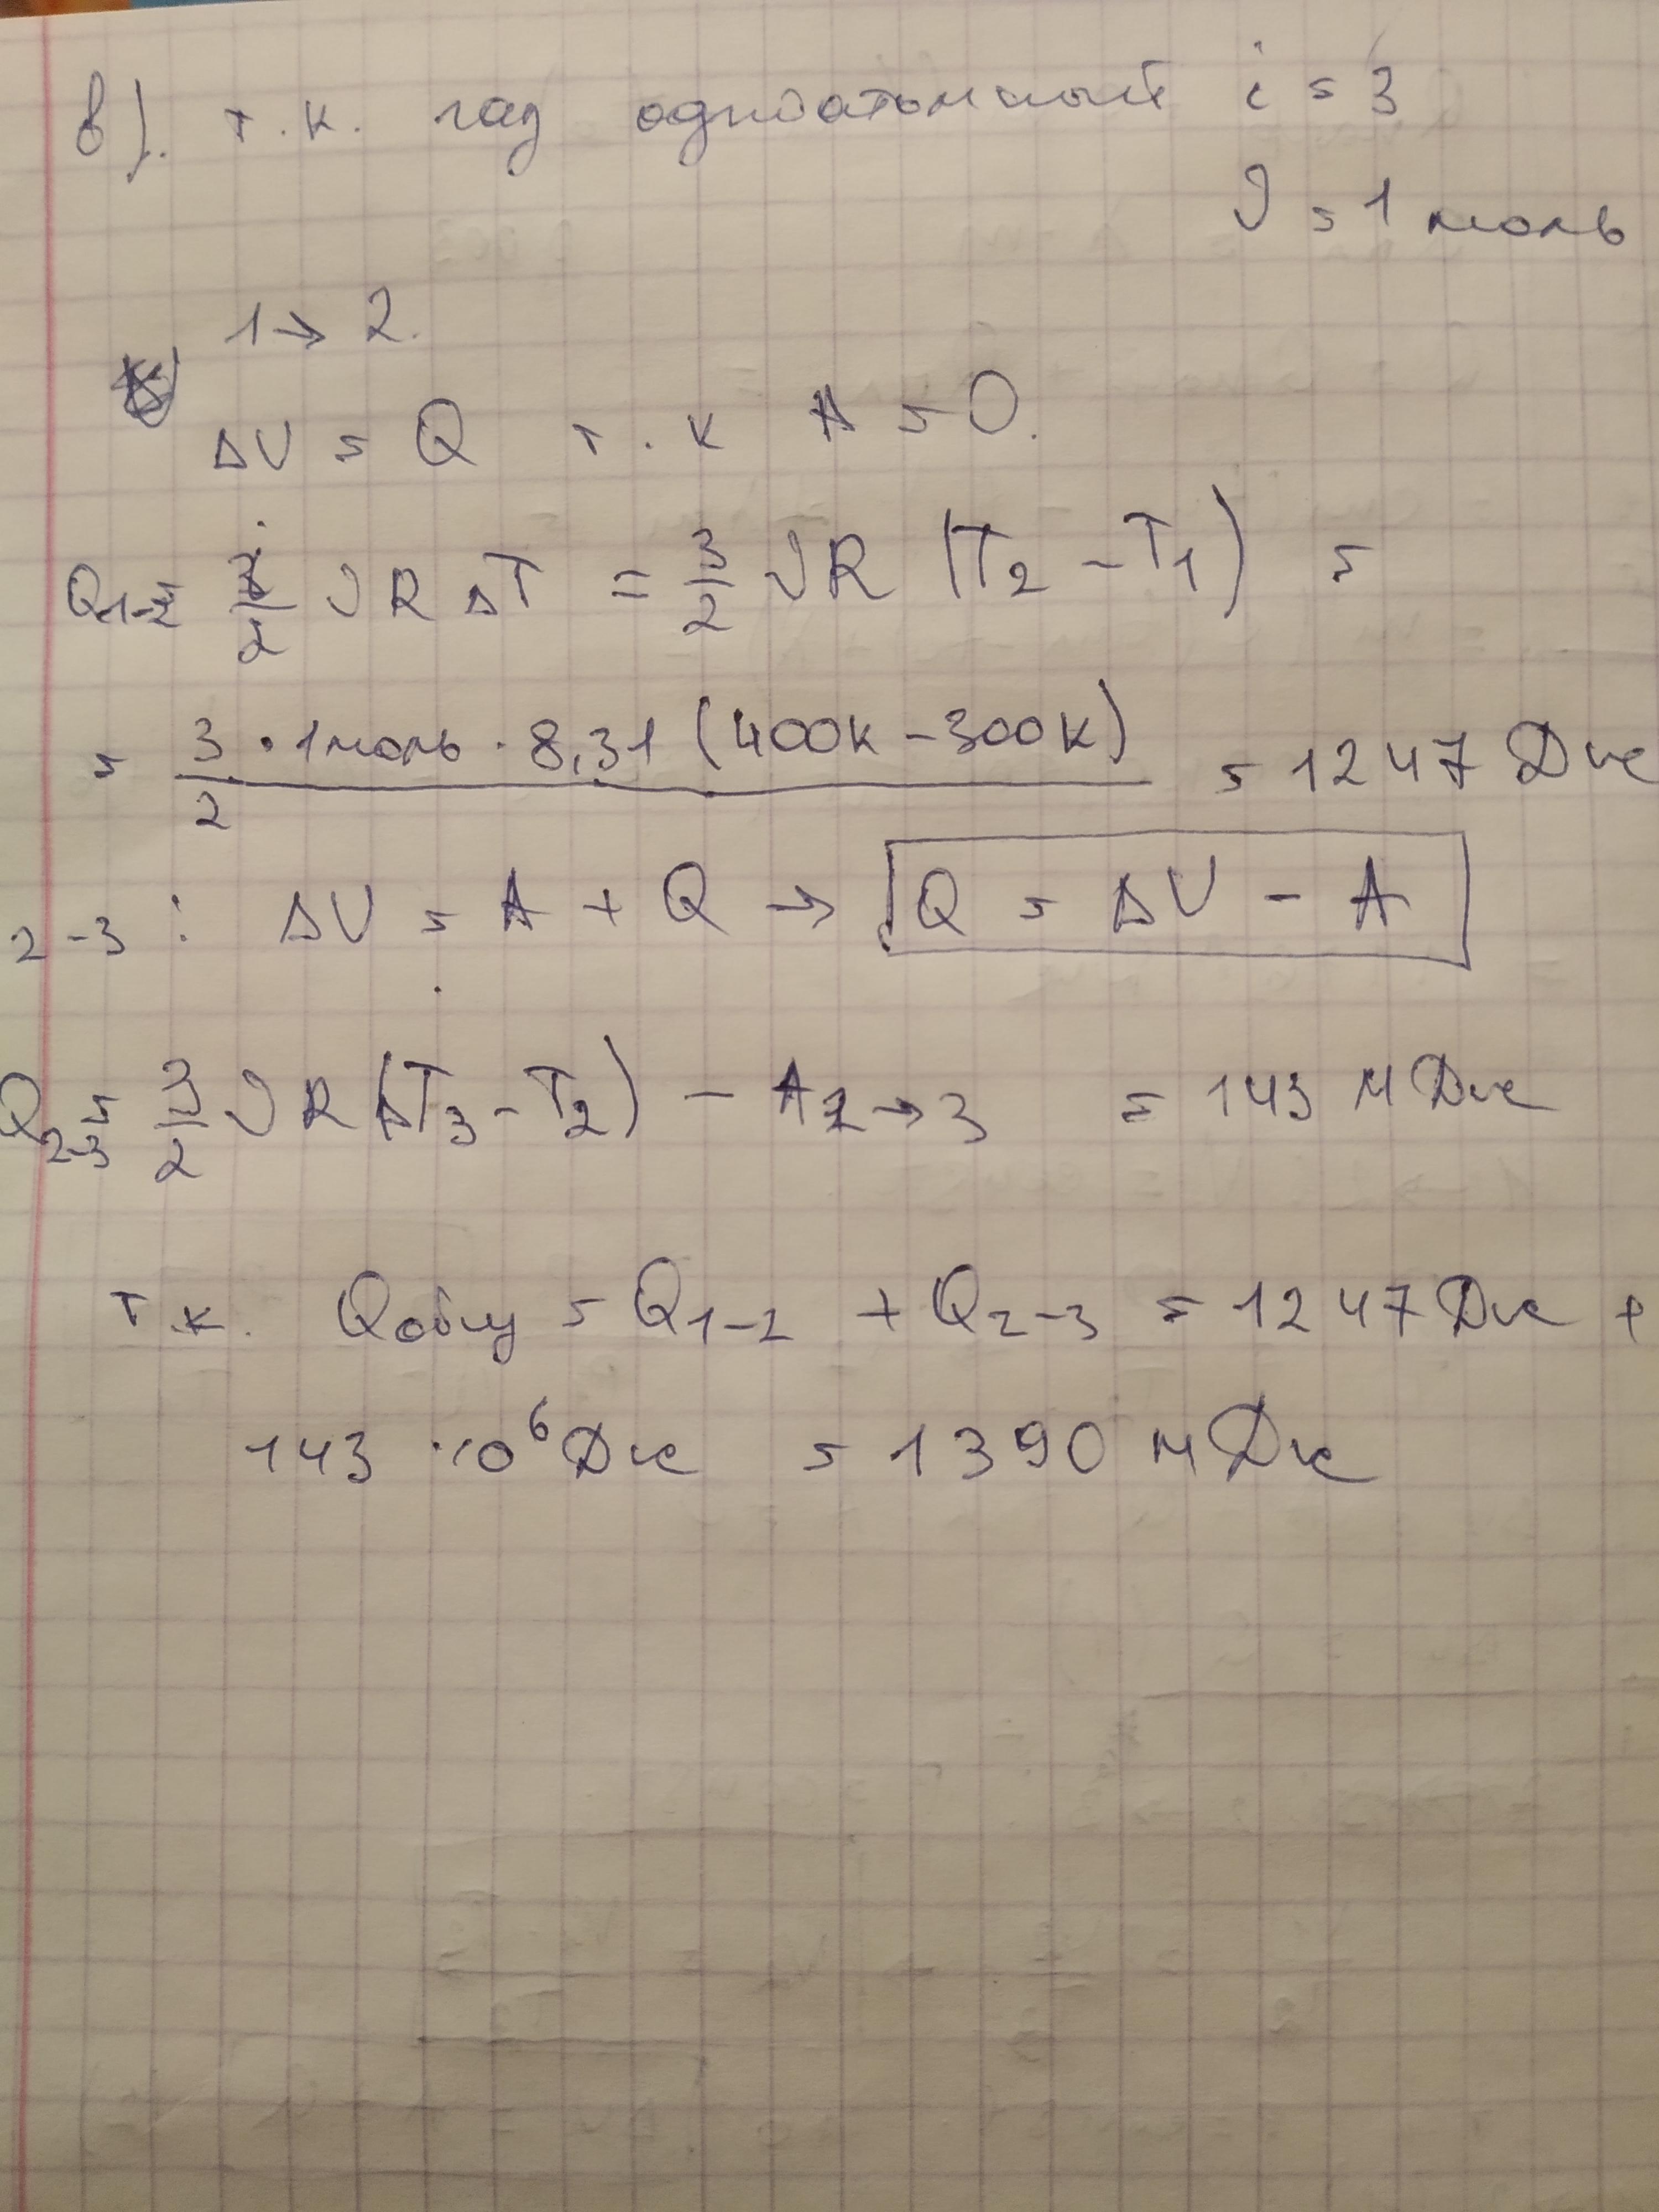 в). т.к. газ одноатомный i = 3
ν = 1 моль
1 → 2.
ΔU = Q т.к A = 0.
Q₁₋₂ = 3/2 νRΔT = 3/2 νR (T₂ - T₁) =
= 3/2 · 1моль · 8,31 (400к - 300к) = 1247 Дж
2-3 : ΔU = A + Q → Q = ΔU - A
Q₂₋₃ = 3/2 νR(ΔT₃ - T₂) - A₂→₃ = 143 МДж
т.к. Qобщ = Q₁₋₂ + Q₂₋₃ = 1247 Дж +
143 · 10⁶ Дж = 1390 МДж